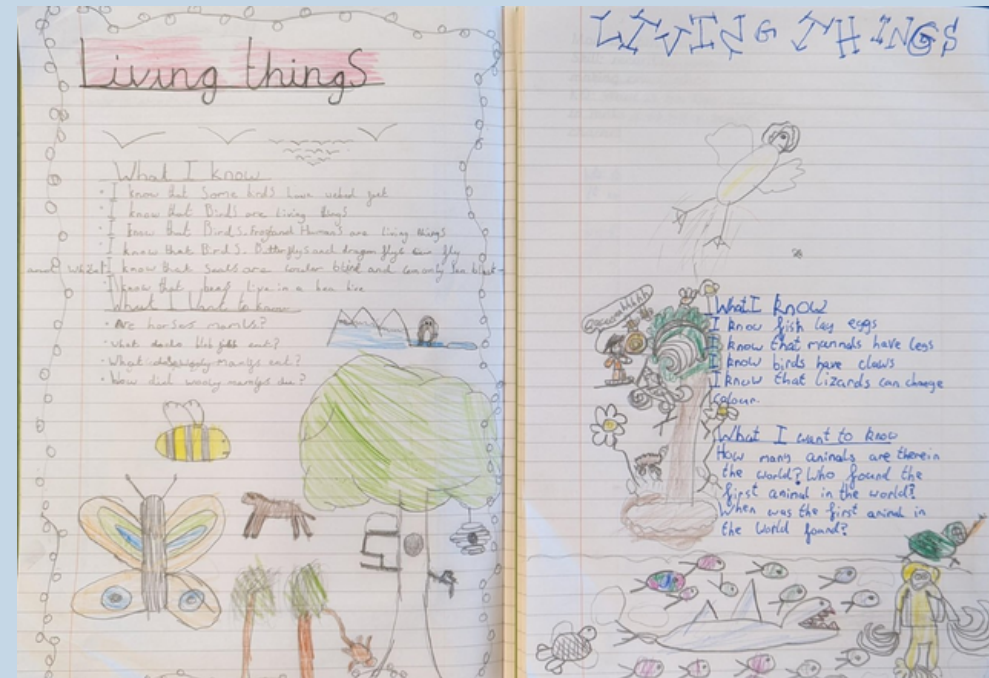 Living things
What I know
• I know that Some birds have webed feet
• I know that Birds are living things
• I know that Birds, Frogs and Humans are living things
• I know that Birds. Butterflys and dragon flys can fly
I know that seals are coulor blind and can only see black
and white
• I know that bees live in a bee hive
What I Want to know
• Are horses mamals?
• what do blob fish eat?
• What did wooly mamoys eat?
• How did wooly mamoys die?
LIVING THINGS
What I know
I know fish lay eggs
I know that mammals have legs
I know birds have claws
I know that lizards can change
colour.
What I want to know
How many animals are there in
the world? Who found the
first animal in the world?
When was the first animal in
the world found?